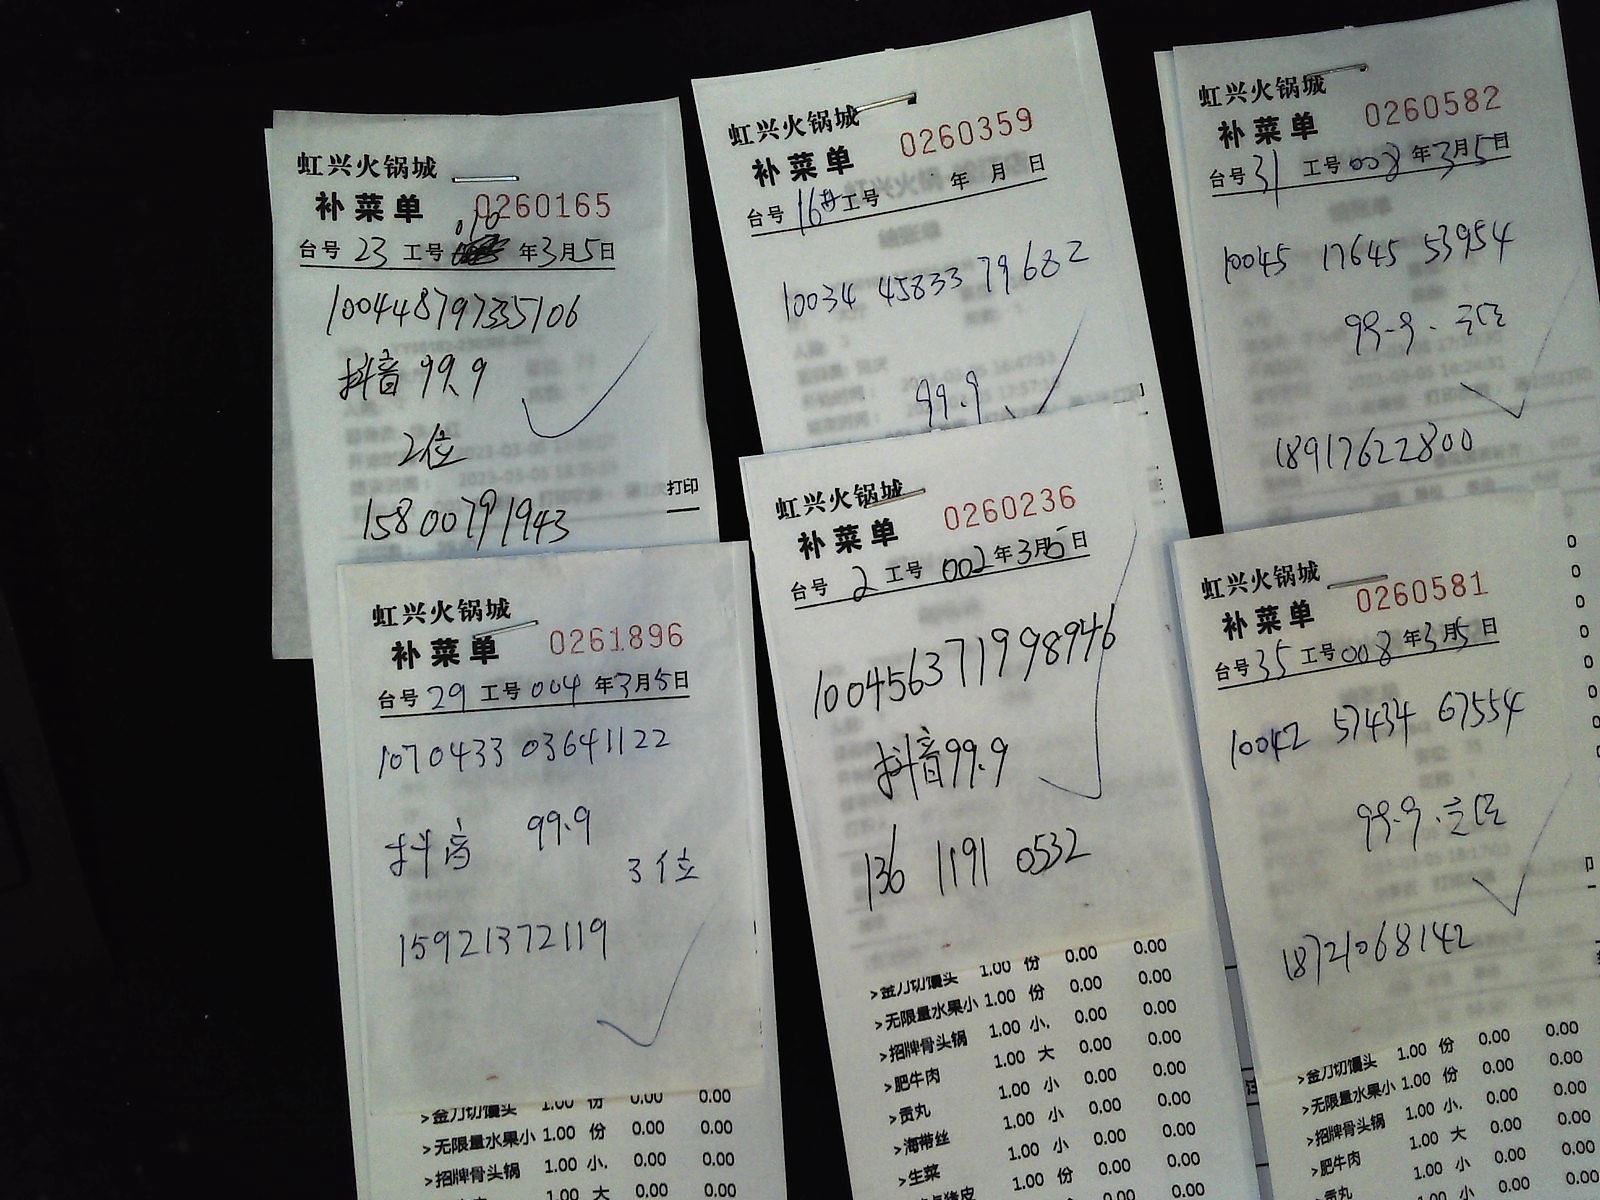 虹兴火锅城
补菜单 0260165
台号 23 工号 010 年3月5日
10044879735106
抖音 99.9
2位
15800791943
打印
虹兴火锅城
补菜单 0260359
台号 16 工号 年 月 日
10034 45833 79682
99.9
虹兴火锅城
补菜单 0260582
台号 31 工号 008 年3月5日
10045 17645 53954
99.9.
18917622800
虹兴火锅城
补菜单 0261896
台号 29 工号 004 年3月5日
1070433 03641122
抖音 99.9
3位
15921372119
>金刀切馒头 1.00 份 0.00 0.00
>无限量水果小 1.00 份 0.00 0.00
>招牌骨头锅 1.00 小. 0.00 0.00
1.00 大 0.00 0.00
虹兴火锅城
补菜单 0260236
台号 2 工号 002 年3月5日
100456371998946
抖音99.9
136 1191 0532
>金刀切馒头 1.00 份 0.00 0.00
>无限量水果小 1.00 份 0.00 0.00
>招牌骨头锅 1.00 小. 0.00 0.00
>肥牛肉 1.00 大 0.00 0.00
>贡丸 1.00 小 0.00 0.00
>海带丝 1.00 小 0.00 0.00
>生菜 1.00 小 0.00 0.00
1.00 份 0.00 0.00
虹兴火锅城
补菜单 0260581
台号 35 工号 008 年3月5日
10042 57434 67554
99.9.
18721068142
>金刀切馒头 1.00 份 0.00 0.00
>无限量水果小 1.00 份 0.00 0.00
>招牌骨头锅 1.00 小. 0.00 0.00
>肥牛肉 1.00 大 0.00 0.00
>贡丸 1.00 小 0.00 0.00